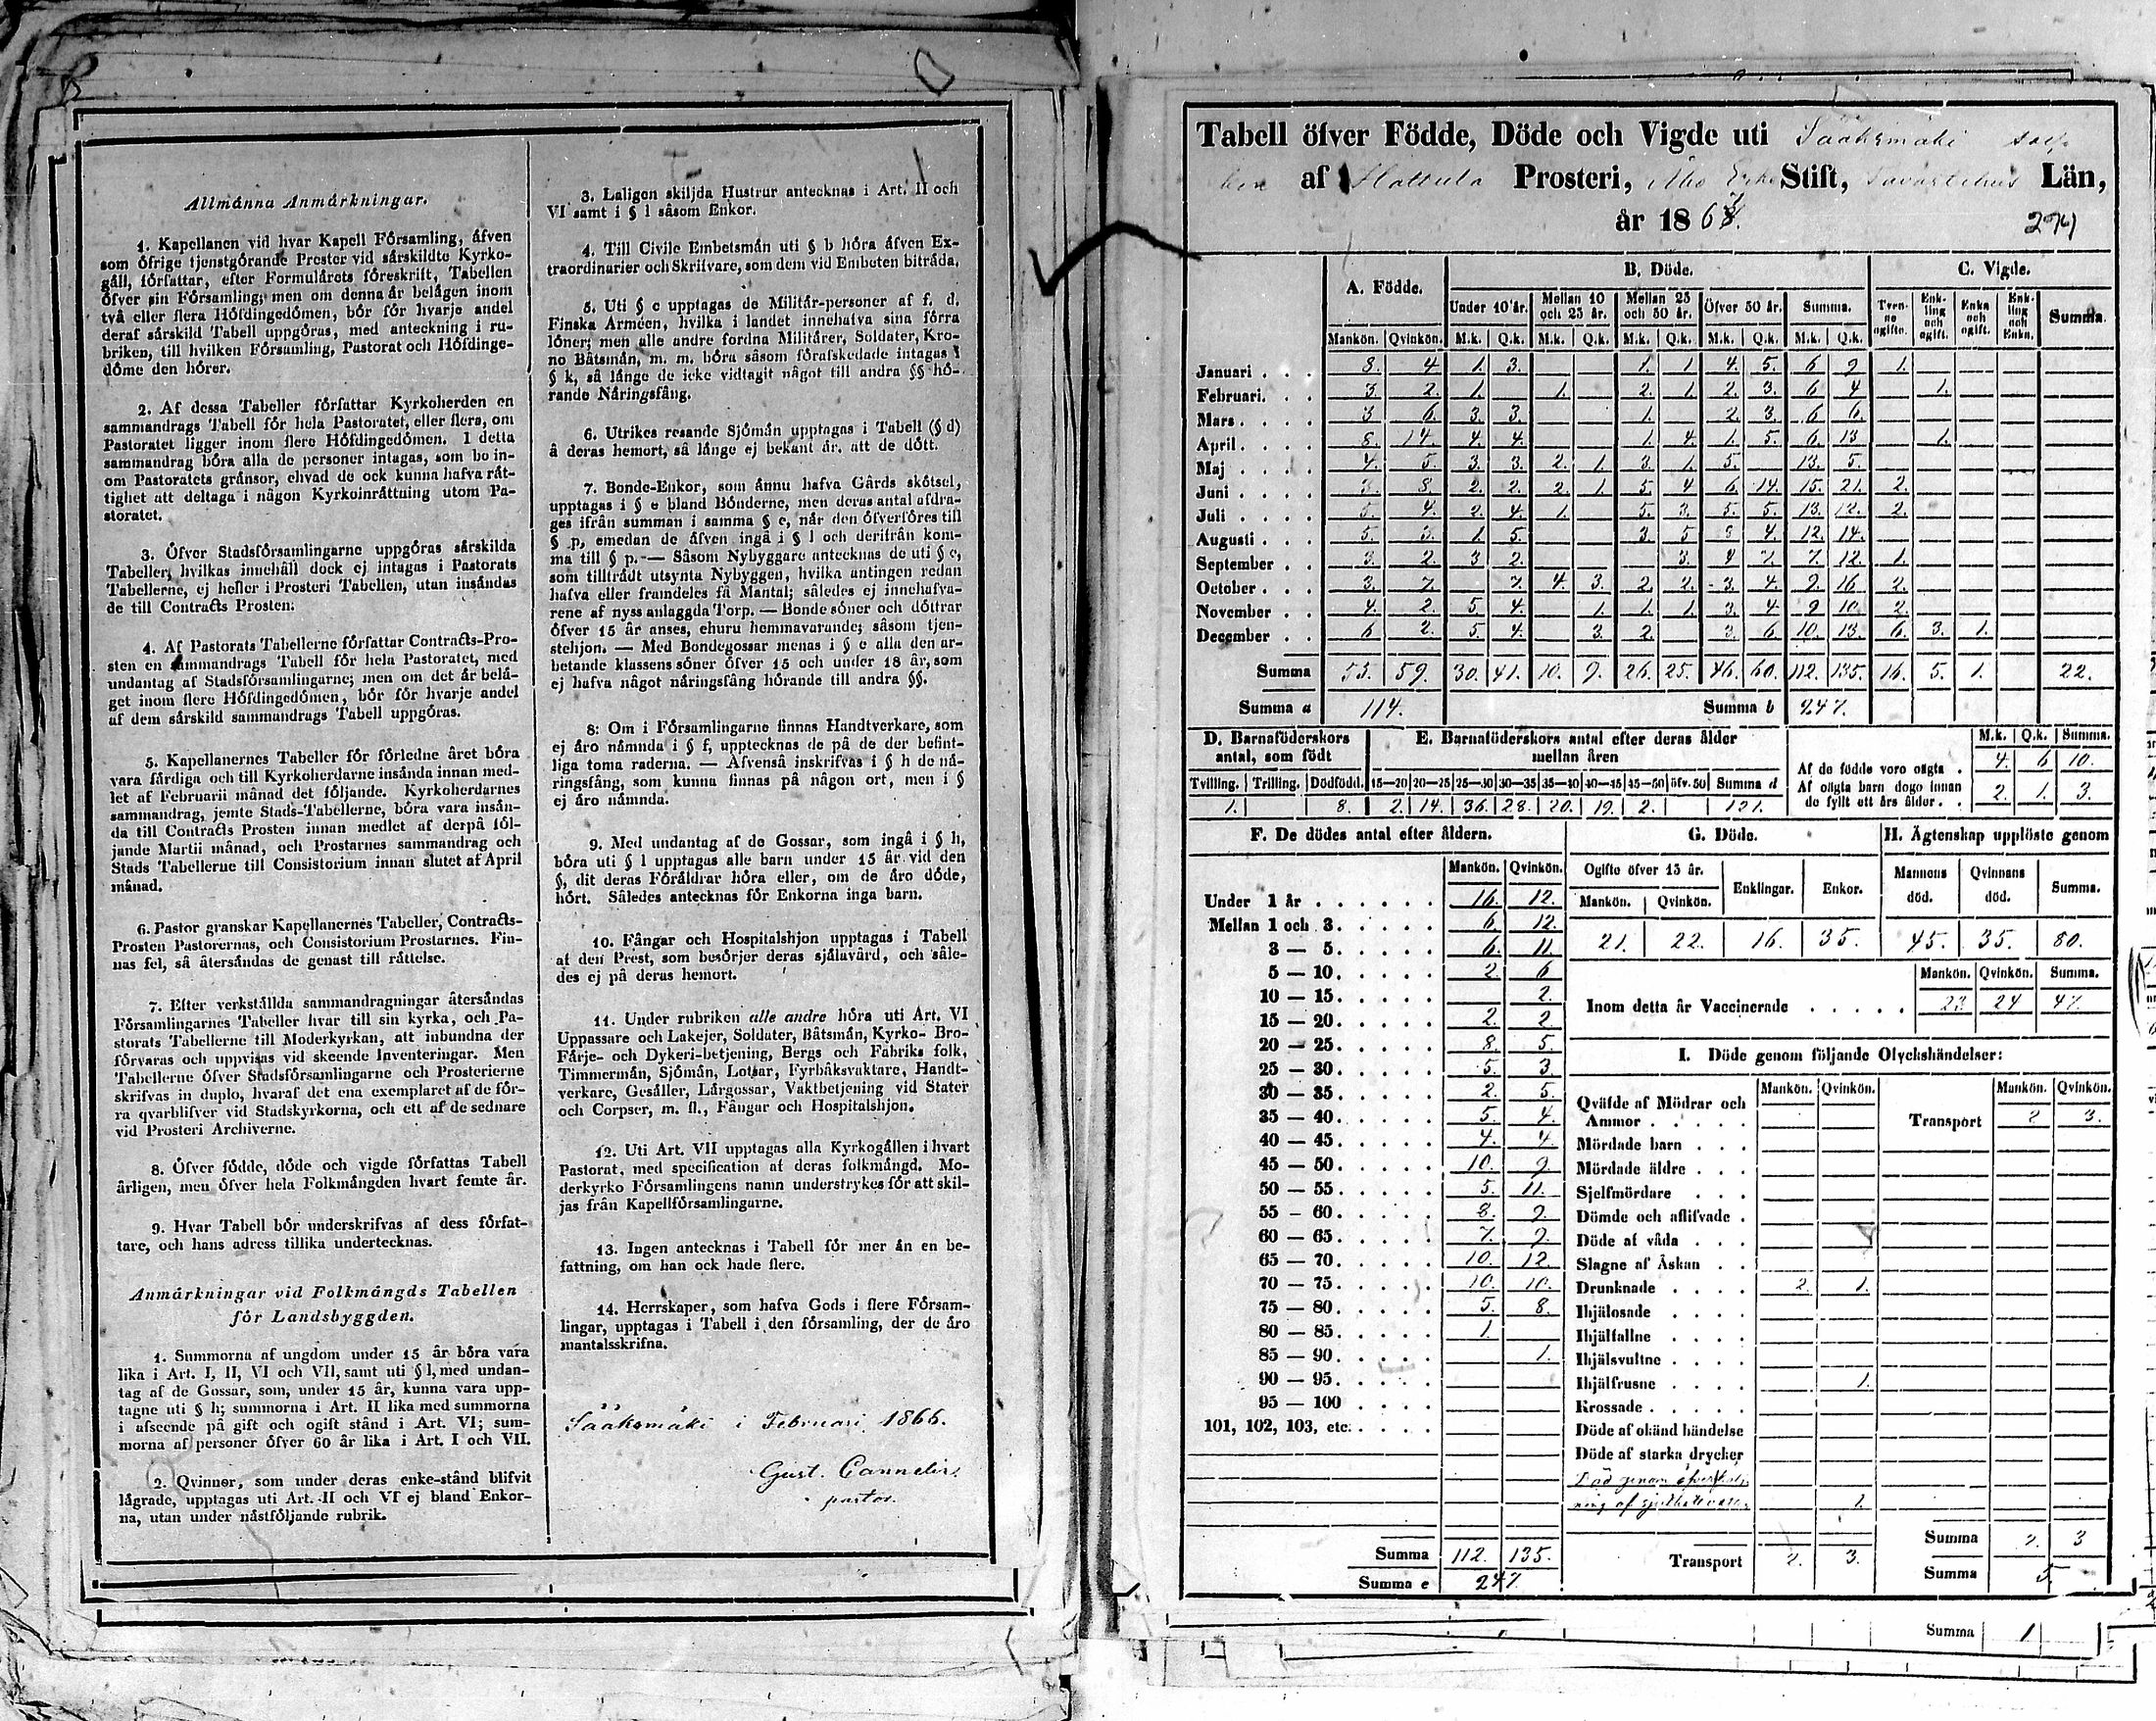 Allmänna Anmärkningar.
1. Kapellanen vid hvar Kapell Församling, äfven
som öfrige tjenstgörande Prester vid särskildte Kyrko-
gäll, författar, efter Formulärets föreskrift, Tabellen
öfver sin Församling; men om denna är belägen inom
två eller flera Höfdingedömen, bör för hvarje andel
deraf särskild Tabell uppgöras, med anteckning i ru-
briken, till hvilken Församling, Pastorat och Höfdinge-
döme den hörer.
2. Af dessa Tabeller författar Kyrkoherden en
sammandrags Tabell för hela Pastoratet, eller flera, om
Pastoratet ligger inom flere Höfdingedömen. I detta
sammandrag böra alla de personer intagas, som bo in-
om Pastoratets gränsor, ehvad de ock kunna hafva rät-
tighet att deltaga i någon Kyrkoinrättning utom Pa-
storatet.
3. Öfver Stadsförsamlingarne uppgöras särskilda
Tabeller, hvilkas innehåll dock ej intagas i Pastorats
Tabellerne, ej heller i Prosteri Tabellen, utan insändas
de till Contracts Prosten.
4. Af Pastorats Tabellerne författar Contracts-Pro-
sten en sammandrags Tabell för hela Pastoratet, med
undantag af Stadsförsamlingarne; men om det är belä-
get inom flere Höfdingedömen, bör för hvarje andel
af dem särskild sammandrags Tabell uppgöras.
5. Kapellanernes Tabeller för förledne året böra
vara färdiga och till Kyrkoherdarne insända innan med-
let af Februarii månad det följande. Kyrkoherdarnes
sammandrag, jemte Stads-Tabellerne, böra vara insän-
da till Contracts Prosten innan medlet af derpå föl-
jande Martii månad, och Prostarnes sammandrag och
Stads Tabellerne till Consistorium innan slutet af April
månad.
6. Pastor granskar Kapellanernes Tabeller, Contracts-
Prosten Pastorernas, och Consistorium Prostarnes. Fin-
nas fel, så återsändas de genast till rättelse.
7. Efter verkställda sammandragningar återsändas
Församlingarnes Tabeller hvar till sin kyrka, och Pa-
storats Tabellerne till Moderkyrkan, att inbundna der
förvaras och uppvisas vid skeende Inventeringar. Men
Tabellerne öfver Stadsförsamlingarne och Prosterierne
skrifvas in duplo, hvaraf det ena exemplaret af de för-
ra qvarblifver vid Stadskyrkorna, och ett af de sednare
vid Prosteri Archiverne.
8. Öfver födde, döde och vigde författas Tabell
årligen, men öfver hela Folkmängden hvart femte år.
9. Hvar Tabell bör underskrifvas af dess förfat-
tare, och hans adress tillika undertecknas.
Anmärkningar vid Folkmängds Tabellen
för Landsbyggden.
1. Summorna af ungdom under 15 år böra vara
lika i Art. I, II, VI och VII, samt uti § l, med undan-
tag af de Gossar, som, under 15 år, kunna vara upp-
tagne uti § h; summorna i Art. II lika med summorna
i afseende på gift och ogift stånd i Art. VI; sum-
morna af personer öfver 60 år lika i Art. I och VII.
2. Qvinnor, som under deras enke-stånd blifvit
lägrade, upptagas uti Art. II och VI ej bland Enkor-
na, utan under nästföljande rubrik.
3. Laligen skiljda Hustrur antecknas i Art. II och
VI samt i § l såsom Enkor.
4. Till Civile Embetsmän uti § b höra äfven Ex-
traordinarier och Skrifvare, som dem vid Embeten biträda.
5. Uti § c upptagas de Militär-personer af f. d.
Finska Arméen, hvilka i landet innehafva sina förra
löner; men alle andre fordna Militärer, Soldater, Kro-
no Båtsmän, m. m. böra såsom förafskedade intagas i
§ k, så länge de icke vidtagit något till andra §§ hö-
rande Näringsfång.
6. Utrikes resande Sjömän upptagas i Tabell (§ d)
å deras hemort, så länge ej bekant är, att de dött.
7. Bonde-Enkor, som ännu hafva Gårds skötsel,
upptagas i § e bland Bönderne, men deras antal afdra-
ges ifrån summan i samma § e, när den öfverföres till
§ p, emedan de äfven ingå i § l och derifrån kom-
ma till § p. — Såsom Nybyggare antecknas de uti § e,
som tillträdt utsynta Nybyggen, hvilka antingen redan
hafva eller framdeles få Mantal; således ej innehafva-
rene af nyss anlaggda Torp. — Bonde söner och döttrar
öfver 15 år anses, ehuru hemmavarande, såsom tjen-
stehjon. — Med Bondegossar menas i § e alla den ar-
betande klassens söner öfver 15 och under 18 år, som
ej hafva något näringsfång hörande till andra §§.
8: Om i Församlingarne finnas Handtverkare, som
ej äro nämnda i § f, upptecknas de på de der befint-
liga toma raderna. — Äfvenså inskrifvas i § h de nä-
ringsfång, som kunna finnas på någon ort, men i §
ej äro nämnda.
9. Med undantag af de Gossar, som ingå i § h,
böra uti § l upptagas alle barn under 15 år vid den
§, dit deras Föräldrar höra eller, om de äro döde,
hört. Således antecknas för Enkorna inga barn.
10. Fångar och Hospitalshjon upptagas i Tabell
af den Prest, som besörjer deras själavård, och såle-
des ej på deras hemort.
11. Under rubriken alle andre höra uti Art. VI
Uppassare och Lakejer, Soldater, Båtsmän, Kyrko- Bro-
Färje- och Dykeri-betjening, Bergs och Fabriks folk,
Timmermän, Sjömän, Lotsar, Fyrbåksvaktare, Handt-
verkare, Gesäller, Lärgossar, Vaktbetjening vid Stater
och Corpser, m. fl., Fångar och Hospitalshjon.
12. Uti Art. VII upptagas alla Kyrkogällen i hvart
Pastorat, med specification af deras folkmängd. Mo-
derkyrko Församlingens namn understrykes för att skil-
jas från Kapellförsamlingarne.
13. Ingen antecknas i Tabell för mer än en be-
fattning, om han ock hade flere.
14. Herrskaper, som hafva Gods i flere Försam-
lingar, upptagas i Tabell i den församling, der de äro
mantalsskrifna.
Sääksmäki i Februari 1866.
Gust. Cannelin
pastor.
Tabell öfver Födde, Döde och Vigde uti Sääksmäki soc-
ken af Hattula Prosteri, Åbo Erke Stift, Tavastehus Län,
år 186
274
A. Födde. B. Döde. C. Vigde.
Under 10 år. Mellan 10 och 25 år. Mellan 25 och 50 år. Öfver 50 år. Summa. Tven-ne ogifte. Enk-ling och ogift. Enka och ogift. Enk-ling och Enka. Summa.
Mankön. Qvinkön. M.k. Q.k. M.k. Q.k. M.k. Q.k. M.k. Q.k. M.k. Q.k.
Januari . . . 8. 4 1. 3. 1. 1 4. 5. 6 9 1.
Februari. . . 3. 2. 1. 1. 2. 1. 2. 3. 6 4 1.
Mars . . . . 3 6. 3. 3. 1. 2. 3. 6 6.
April . . . . 8. 14. 4. 4. 1. 4. 1. 5. 6. 13 1.
Maj . . . . 4. 5. 3. 3. 2. 1. 3. 1. 5. 13. 5.
Juni . . . . 8. 2. 2. 2. 1. 5. 4 6. 14. 15. 21. 2.
Juli . . . . 5. 4. 2. 4. 1. 5. 3. 5. 5. 13. 12. 2.
Augusti . . . 5. 3. 1. 5. 3. 5 8 4. 12. 14.
September . . 3. 2. 3 2. 3. 4 7. 7. 12. 1.
October . . . 3. 7. 7. 4. 3. 2. 2. 3. 4. 9. 16 2.
November . . 4. 2. 5. 4. 1. 1. 1. 3. 4 9 10. 2.
December . . 6 2. 5. 4. 3. 2. 3. 6. 10. 13. 6. 3. 1.
Summa 55. 59. 30. 41. 10. 9. 26. 25. 46. 60. 112. 135. 16. 5. 1. 22.
Summa a 114. Summa b 247.
D. Barnaföderskors antal, som födt
Tvilling. Trilling. Dödfödd.
1. 8.
E. Barnaföderskors antal efter deras ålder mellan åren
15—20 20—25 25—30 30—35 35—40 40—45 45—50 öfv. 50 Summa d
2. 14. 36. 28. 20. 19. 2. 121.
M.k. Q.k. Summa.
Af de födde voro oägta . 4. 6 10.
Af oägta barn dogo innan
de fyllt ett års ålder . . 2. 1. 3.
F. De dödes antal efter åldern.
Mankön. Qvinkön.
Under 1 år . . . . . . 16. 12.
Mellan 1 och 3. . . . . 6. 12.
3 — 5. . . . . 6. 11.
5 — 10. . . . . 2. 6
10 — 15. . . . . 2.
15 — 20. . . . . 2. 2.
20 — 25. . . . . 8. 5.
25 — 30. . . . . 5. 3.
30 — 35. . . . . 2. 5.
35 — 40. . . . . 5. 4.
40 — 45. . . . . 4. 4.
45 — 50. . . . . 10. 9.
50 — 55. . . . . 5. 11.
55 — 60. . . . . 8. 9.
60 — 65. . . . . 7. 9.
65 — 70. . . . . 10. 12.
70 — 75. . . . . 10. 10.
75 — 80. . . . . 5. 8.
80 — 85. . . . . 1.
85 — 90. . . . . 1.
90 — 95. . . . .
95 — 100 . . . .
101, 102, 103, etc. . . . .
Summa 112. 135.
Summa e 247.
G. Döde.
Ogifte öfver 15 år. Enklingar. Enkor.
Mankön. Qvinkön.
21. 22. 16. 35.
H. Ägtenskap upplöste genom
Mannens död. Qvinnans död. Summa.
45. 35. 80.
Mankön. Qvinkön. Summa.
Inom detta år Vaccinerade . . . . . 23. 24 47.
I. Döde genom följande Olyckshändelser:
Mankön. Qvinkön. Mankön. Qvinkön.
Qväfde af Mödrar och
Ammor . . . . . Transport 2 3.
Mördade barn . . .
Mördade äldre . . .
Sjelfmördare . . .
Dömde och aflifvade .
Döde af våda . . .
Slagne af Åskan . .
Drunknade . . . . 2. 1.
Ihjälosade . . . .
Ihjälfallne . . . .
Ihjälsvultne . . . .
Ihjälfrusne . . . . 1.
Krossade . . . . .
Döde af okänd händelse
Döde af starka drycker
Död genom
ning af 1.
Transport 2. 3.
Summa 2. 3
Summa 5.
Summa 1